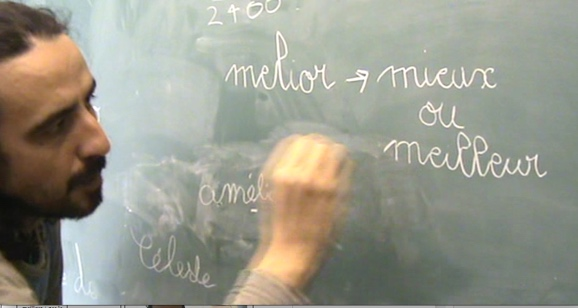 2400
melior → mieux
ou
meilleur
améli
Céleste
de